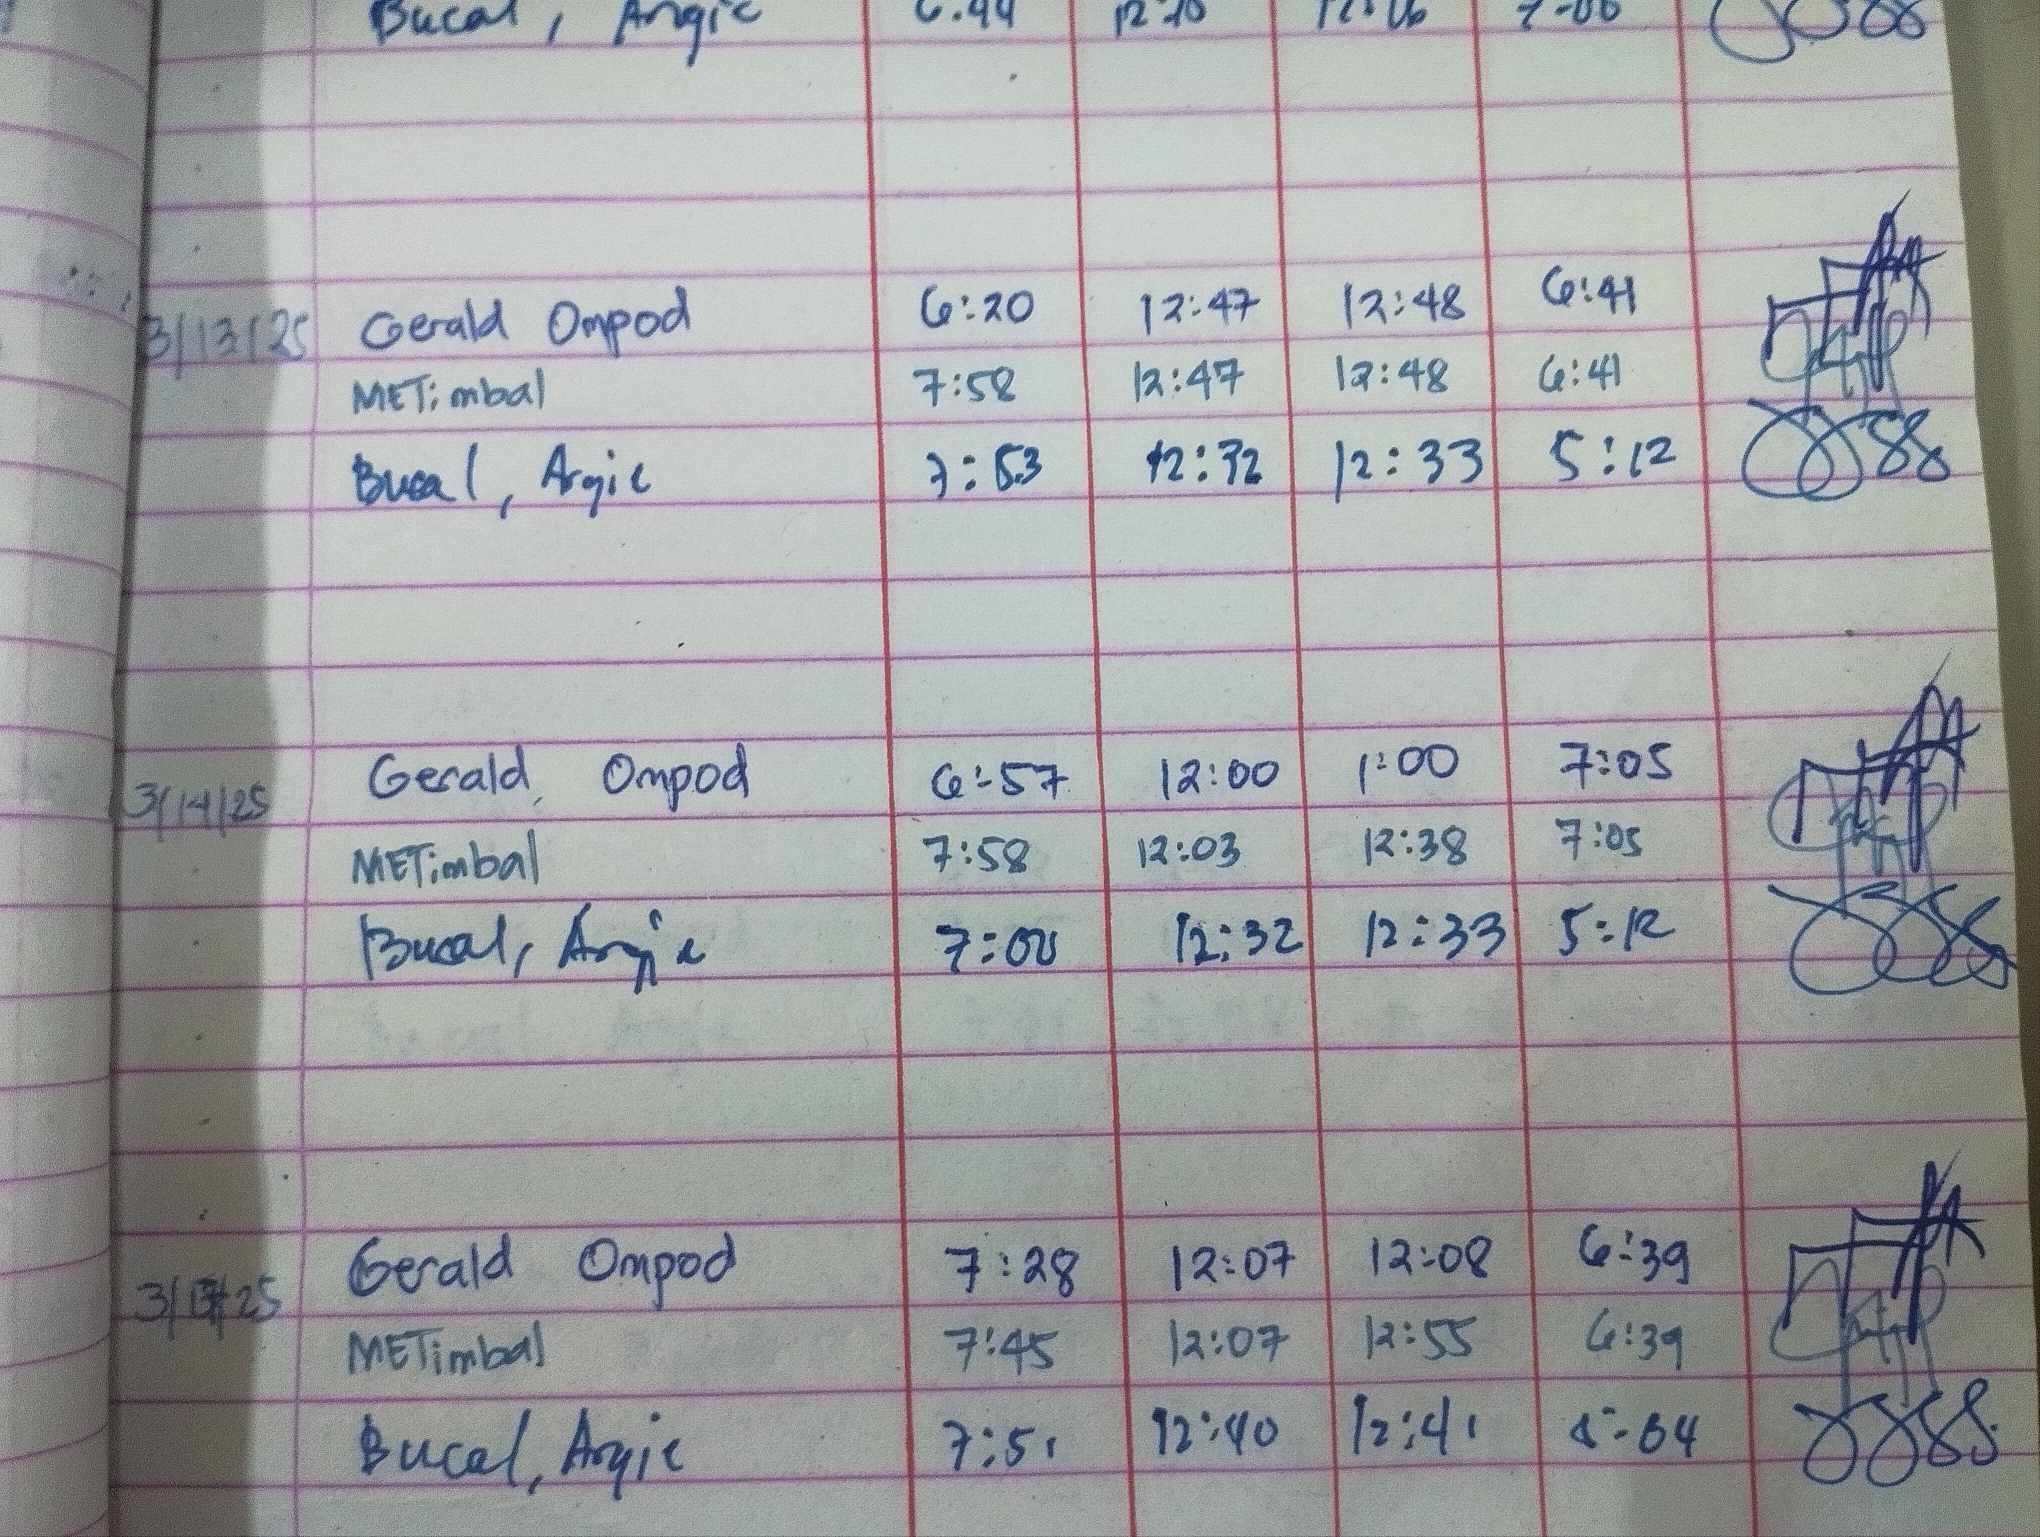 Bucal, Angie 6:44
3/13/25 Gerald Ompod 6:20 12:47 12:48 6:41
METimbal 7:58 12:47 12:48 6:41
Bucal, Argie 7:53 12:32 12:33 5:12
3/14/25 Gerald Ompod 6:57 12:00 1:00 7:05
METimbal 7:58 12:03 12:38 7:05
Bucal, Argie 7:00 12:32 12:33 5:12
Gerald Ompod 7:28 12:07 12:08 6:39
METimbal 7:45 12:07 12:55 6:39
Bucal, Argie 7:51 12:40 12:41